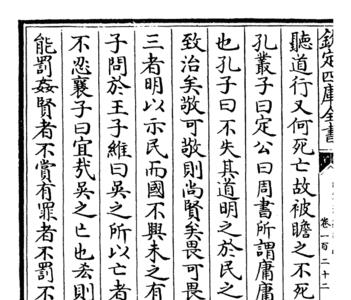 欽定四庫全書
卷一百二十二
聽道行又何死亡故被瞻之不死
孔叢子曰定公曰周書所謂庸庸
也孔子曰不失其道明之於民之
致治矣敬可敬則尚賢矣畏可畏
三者明以示民而國不興未之有
子問於王子維曰吳之所以亡者
不忍襄子曰宜哉吳之亡也恡則
能罰姦賢者不賞有罪者不罰不